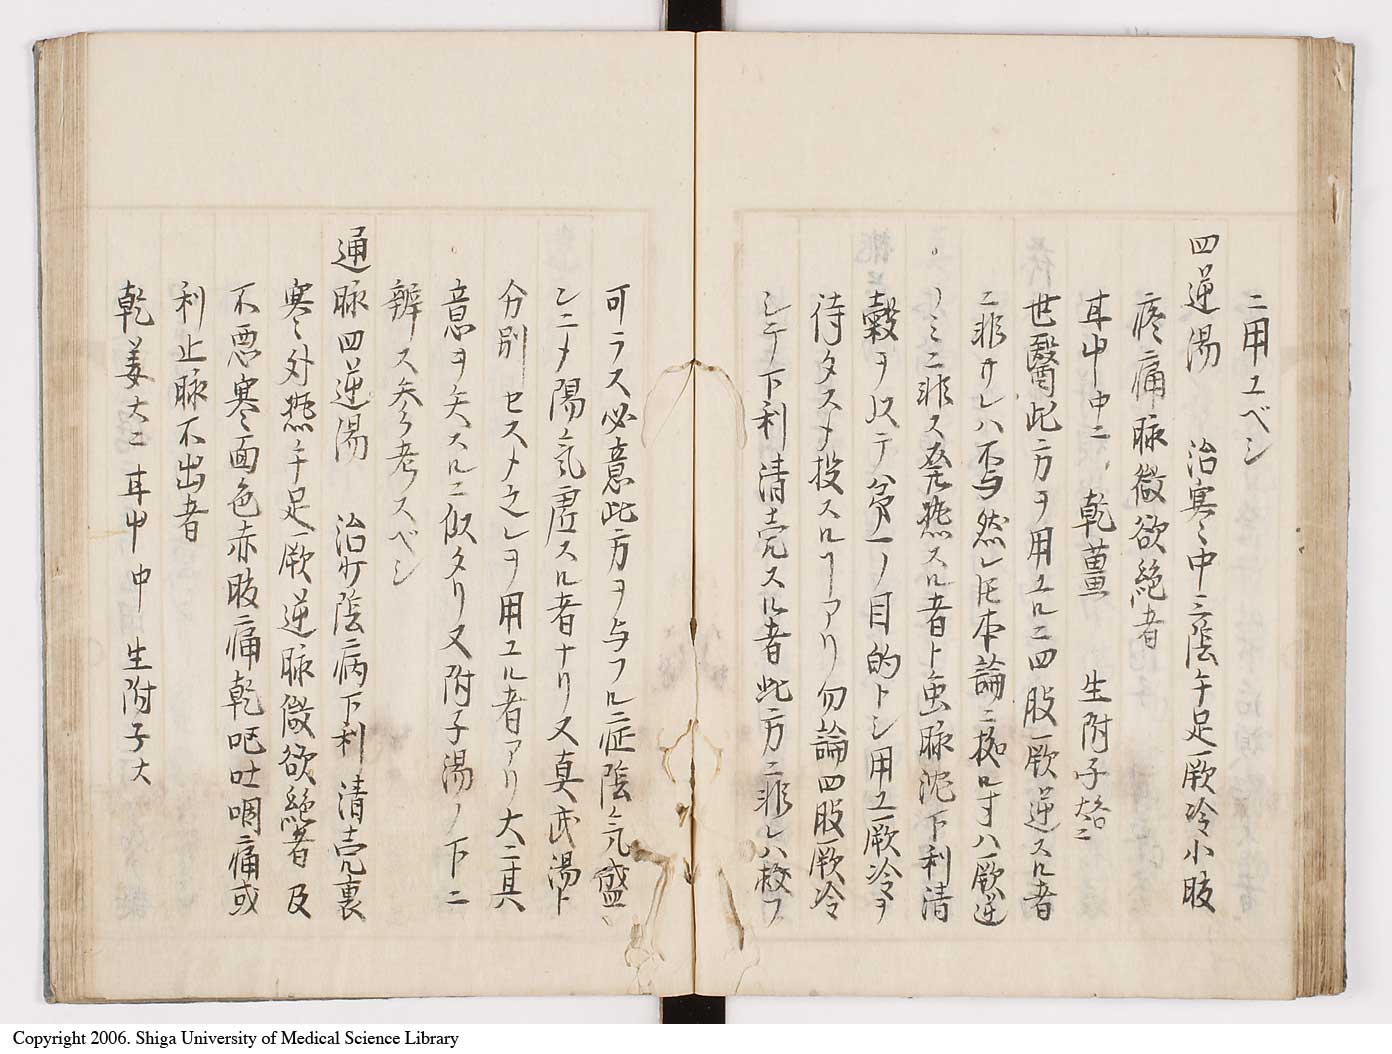 ニ用ユベシ
四逆湯　治寒中三陰手足厥冷小腹
疼痛脉微欲絶者
耳中中ニ　乾薑　生附子大
世醫此方ヲ用ユルニ四股厥逆スル者
ニ非サレハ不与然レ㐧本論ニ拠ル寸ハ厥逆
ノミニ非ス発熱スル者ト虽脉沈下利清
穀ヲ以テ第一ノ目的トシ用ユ厥冷ヲ
待タスメ投スルヿアリ勿論四股厥冷
シテ下利清壳スル者此方ニ非レハ救フ
可ラス必意此方ヲ与フル症陰気盛
ンニメ陽気虚スル者ナリ又真武湯ト
分別セスト之レヲ用ユル者アリ大ニ其
意ヲ失スルニ似タリ又附子湯ノ下ニ
辨ス参考スベシ
通脉四逆湯　治少陰病下利清壳裏
寒外熱手足厥逆脉微欲絶者及
不悪寒面色赤腹痛乾呕吐咽痛或
利止脉不出者
乾姜大ニ　耳中中　生附子大
Copyright 2006. Shiga University of Medical Science Library